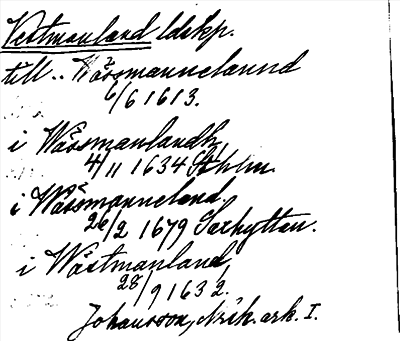 Vestmanland ldskp.
till .. Wässmannelannd
6/6 1613.
i Wässmanlandh,
4/11 1634 Sthlm.
i Wässmanneland,
26/2 1679 Saxhyttan.
i Wästmanland,
28/9 1632.
Johansson, Nrik. ark. I.